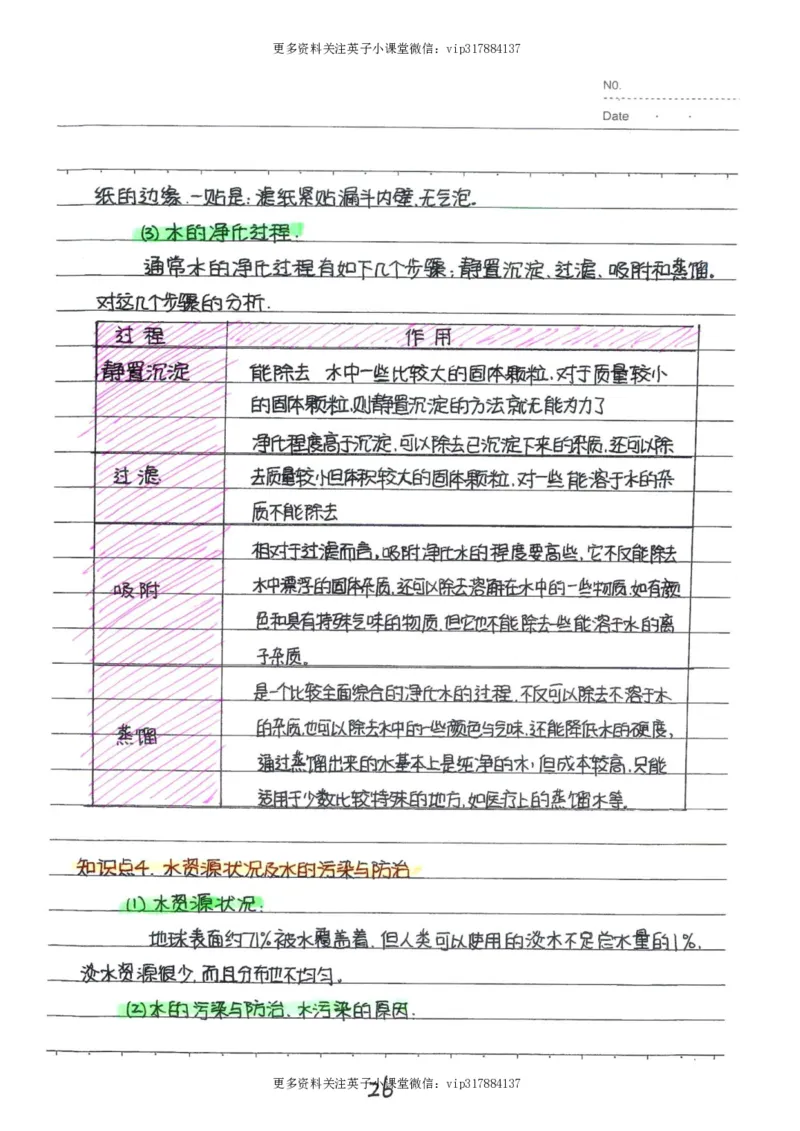 更多资料关注英子小课堂微信：vip317884137
NO.
Date
纸的边缘.一贴是:滤纸紧贴漏斗内壁,无气泡。
(3)水的净化过程.
通常水的净化过程有如下几个步骤:静置沉淀、过滤、吸附和蒸馏。
对这几个步骤的分析.
过程 作用
静置沉淀 能除去 水中一些比较大的固体颗粒,对于质量较小
的固体颗粒,则静置沉淀的方法就无能为力了
净化程度高于沉淀,可以除去已沉淀下来的杂质,还可以除
过滤 去质量较小但体积较大的固体颗粒,对一些能溶于水的杂
质不能除去
相对于过滤而言,吸附净化水的程度要高些,它不仅能除去
吸附 水中漂浮的固体杂质,还可以除去溶解在水中的一些物质,如有颜
色和具有特殊气味的物质,但它也不能除去一些能溶于水的离
子杂质。
是一个比较全面综合的净化水的过程,不仅可以除去不溶于水
蒸馏 的杂质,也可以除去水中的一些颜色与气味,还能降低水的硬度,
通过蒸馏出来的水基本上是纯净的水,但成本较高,只能
适用于少数比较特殊的地方,如医疗上的蒸馏水等.
知识点4.水资源状况及水的污染与防治
(1)水资源状况:
地球表面约71%被水覆盖着,但人类可以使用的淡水不足总水量的1%.
淡水资源很少,而且分布也不均匀。
(2)水的污染与防治、水污染的原因:
更多资料关注英子小课堂微信：vip317884137
26